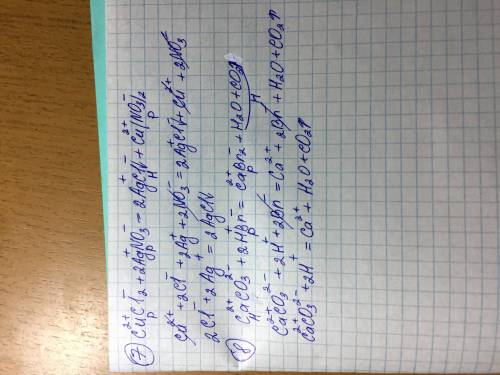 7) CuCl2 + 2AgNO3 = 2AgCl↓ + Cu(NO3)2
Cu²⁺ + 2Cl⁻ + 2Ag⁺ + 2NO3⁻ = 2AgCl↓ + Cu²⁺ + 2NO3⁻
2Cl⁻ + 2Ag⁺ = 2AgCl↓
8) CaCO3 + 2HBr = CaBr2 + H2O + CO2↑
CaCO3 + 2H⁺ + 2Br⁻ = Ca²⁺ + 2Br⁻ + H2O + CO2↑
CaCO3 + 2H⁺ = Ca²⁺ + H2O + CO2↑